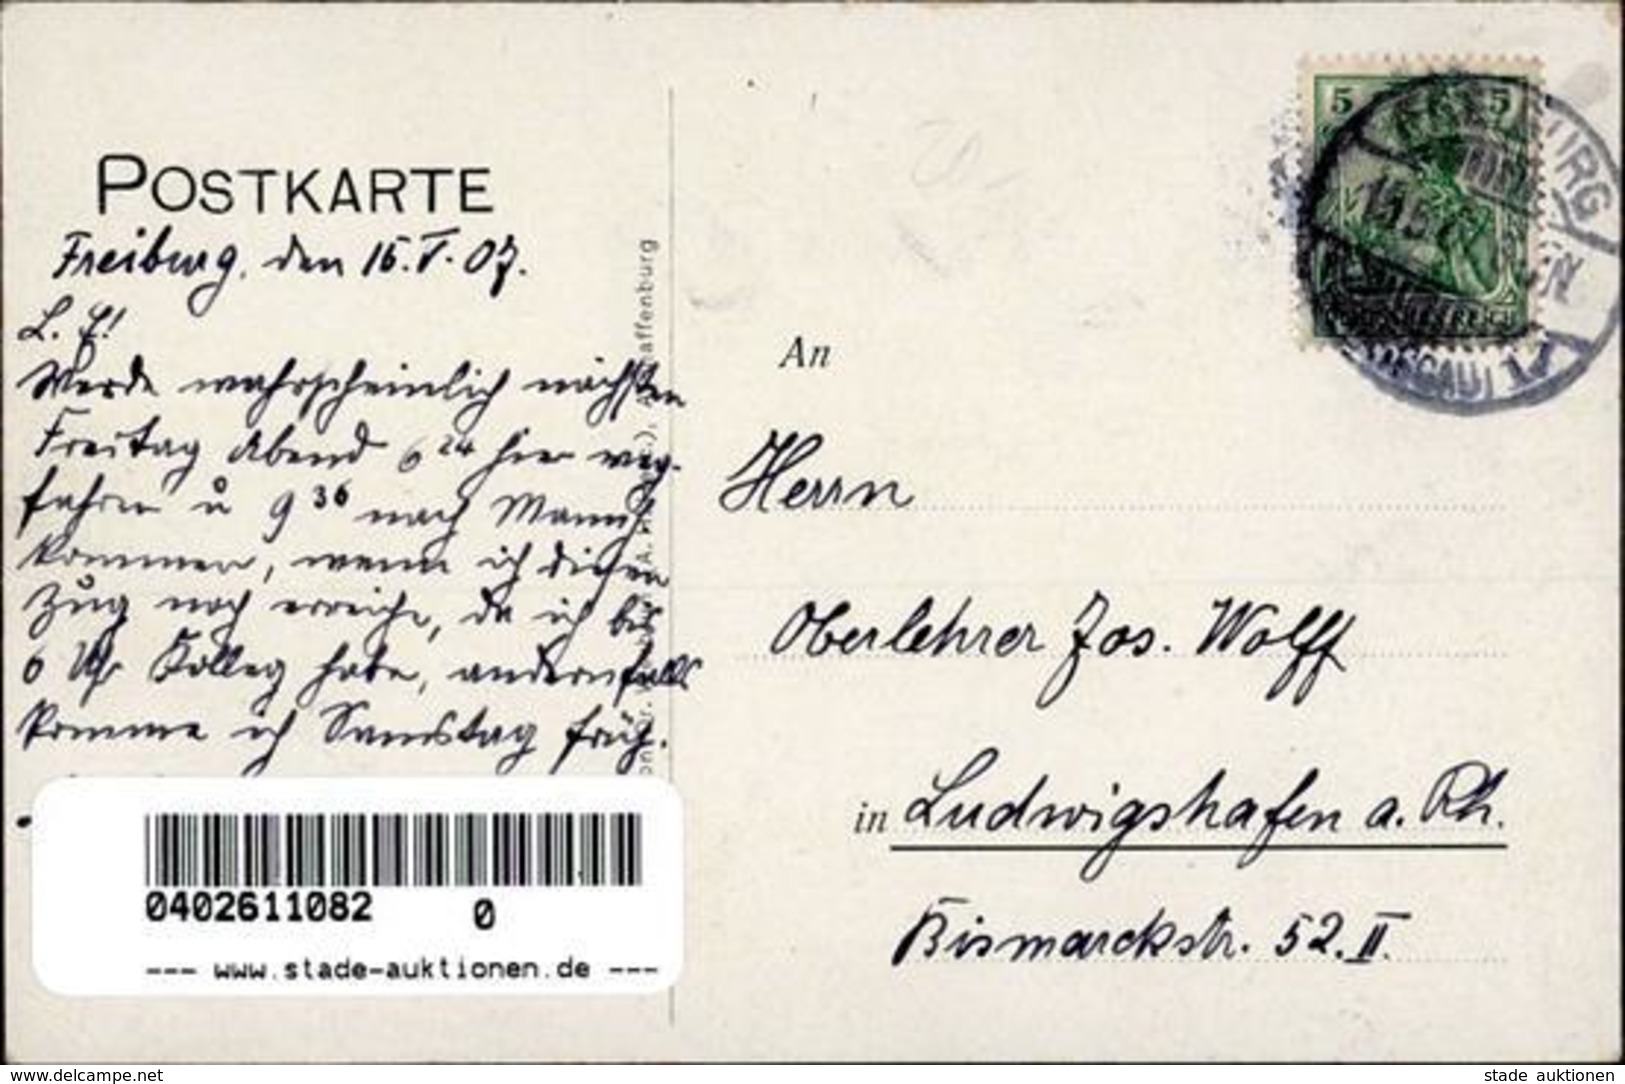 POSTKARTE
Freiburg, den 15. V. 07.
L. E!
Werde wahrscheinlich nächsten
Freitag Abend 6 24 hier weg-
fahren u 9 36 nach Mannh.
kommen, wenn ich diesen
Zug noch erreiche, da ich bis
6 Uhr Kolleg habe, andernfalls
komme ich Samstag früh.
affenburg
An
Herrn
Oberlehrer Jos. Wolff
in Ludwigshafen a. Rh.
Bismarckstr. 52. II.
5 5
0402611082 0
--- www.stade-auktionen.de ---
www.delcampe.net
stade auktionen